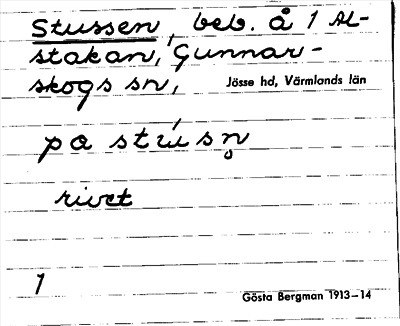 Stussen, beb. å 1 Al-
stakan, Gunnar-
skogs sn, Jösse hd, Värmlands län
pa stu̇́sn̥
rivet
1
Gösta Bergman 1913–14